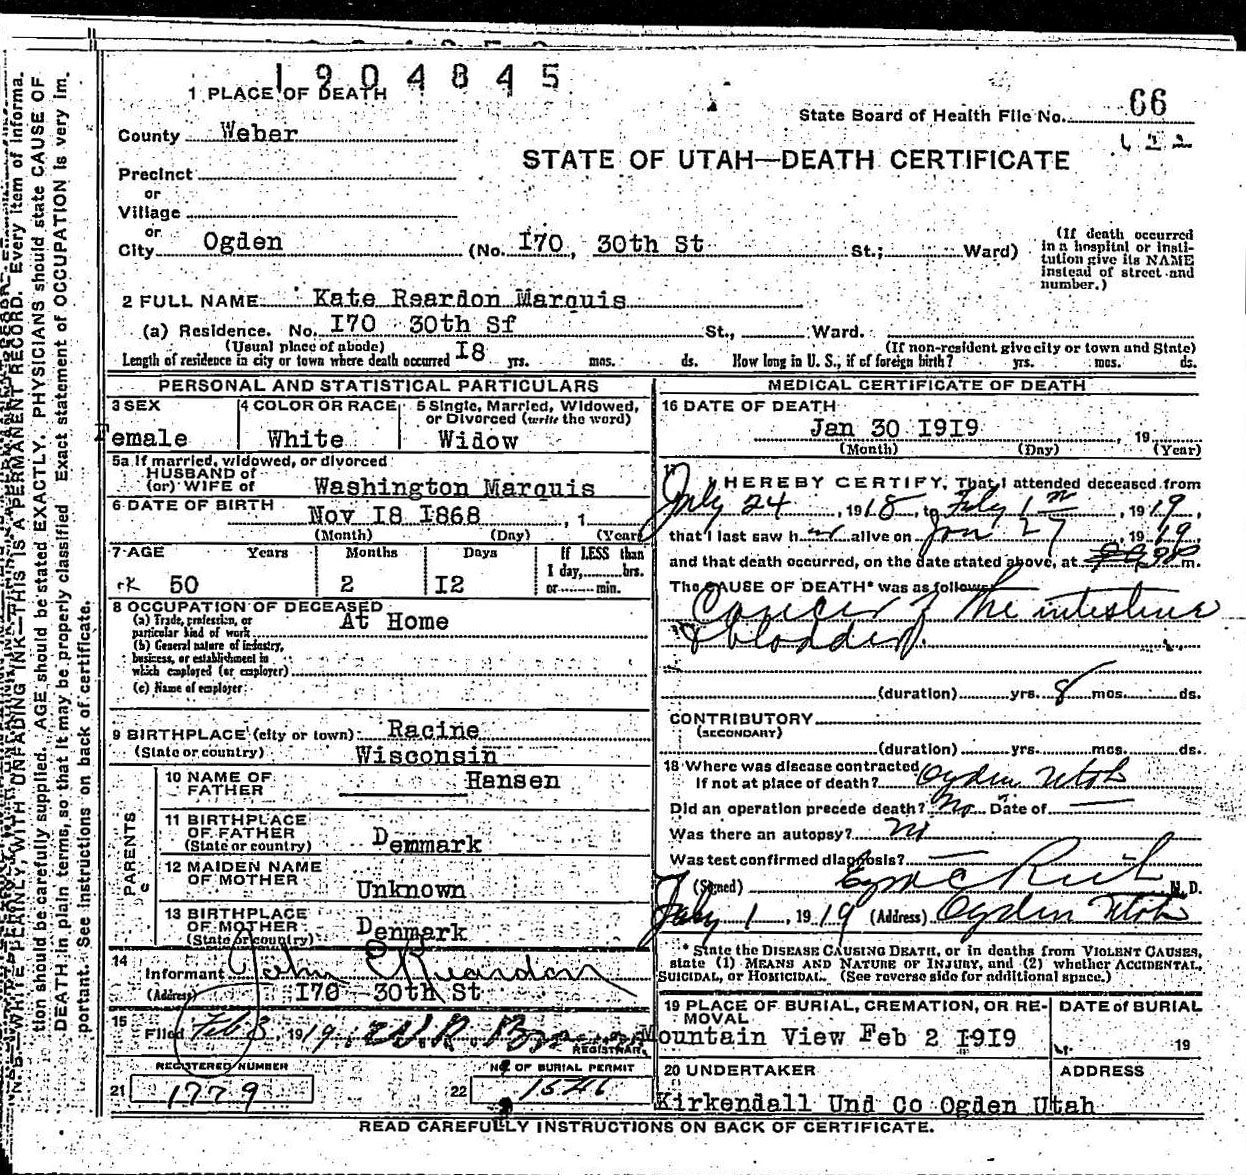 1904845
1 PLACE OF DEATH
State Board of Health File No. 66
County Weber
STATE OF UTAH—DEATH CERTIFICATE
Precinct
or
Village
or
City Ogden (No. I70, 30th St St.; Ward)
(If death occurred in a hospital or insti-
tution give its NAME
instead of street and
number.)
2 FULL NAME Kate Reardon Marquis
(a) Residence. No. I70 30th St St., Ward.
(Usual place of abode) (If non-resident give city or town and State)
Length of residence in city or town where death occurred I8 yrs. mos. ds. How long in U. S., if of foreign birth? yrs. mos. ds.
PERSONAL AND STATISTICAL PARTICULARS
3 SEX 4 COLOR OR RACE 5 Single, Married, Widowed,
or Divorced (write the word)
Female White Widow
5a If married, widowed, or divorced
HUSBAND of
(or) WIFE of Washington Marquis
6 DATE OF BIRTH Nov I8 I868, 1
(Month) (Day) (Year)
7 AGE Years Months Days If LESS than
1 day, hrs.
or min.
50 2 I2
8 OCCUPATION OF DECEASED
(a) Trade, profession, or
particular kind of work At Home
(b) General nature of industry,
business, or establishment in
which employed (or employer)
(c) Name of employer
9 BIRTHPLACE (city or town) Racine
(State or country) Wisconsin
PARENTS
10 NAME OF
FATHER Hansen
11 BIRTHPLACE
OF FATHER
(State or country) Denmark
12 MAIDEN NAME
OF MOTHER Unknown
13 BIRTHPLACE
OF MOTHER
(State or country) Denmark
14
Informant John Reardon
(Address) I70 30th St
15
Filed Feb 3, 1919
REGISTRAR
REGISTERED NUMBER
21 1779
No. OF BURIAL PERMIT
22 1546
MEDICAL CERTIFICATE OF DEATH
16 DATE OF DEATH
Jan 30 I9I9, 19
(Month) (Day) (Year)
17 I HEREBY CERTIFY, That I attended deceased from
July 24, 1918, to Feby 1, 1919,
that I last saw her alive on Jan 27, 1919,
and that death occurred, on the date stated above, at m.
The CAUSE OF DEATH* was as follows:
Cancer of the intestine
& bladder.
(duration) yrs. 8 mos. ds.
CONTRIBUTORY
(SECONDARY)
(duration) yrs. mos. ds.
18 Where was disease contracted
if not at place of death? Ogden Utah
Did an operation precede death? No Date of —
Was there an autopsy? No
Was test confirmed diagnosis? —
(Signed) Rich M. D.
Feby 1, 1919 (Address) Ogden Utah
* State the DISEASE CAUSING DEATH, or in deaths from VIOLENT CAUSES,
state (1) MEANS AND NATURE OF INJURY, and (2) whether ACCIDENTAL,
SUICIDAL, or HOMICIDAL. (See reverse side for additional space.)
19 PLACE OF BURIAL, CREMATION, OR RE-
MOVAL DATE of BURIAL
Mountain View Feb 2 I9I9 19
20 UNDERTAKER ADDRESS
Kirkendall Und Co Ogden Utah
READ CAREFULLY INSTRUCTIONS ON BACK OF CERTIFICATE.
N. B.—WRITE PLAINLY, WITH UNFADING INK—THIS IS A PERMANENT RECORD. Every item of informa-
tion should be carefully supplied. AGE should be stated EXACTLY. PHYSICIANS should state CAUSE OF
DEATH in plain terms, so that it may be properly classified. Exact statement of OCCUPATION is very im-
portant. See instructions on back of certificate.